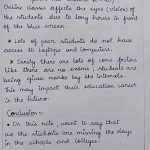 Online Classes affects the eyes (vision) of
the students due to long hours in front
of the blue screen.
* Lots of poor students do not have
access to Laptops and Computers.
* Surely there are lots of cons factors
like there are no exams, students are
being given marks by the internals.
This may impact their education career
in the future.
Conclusion :-
* On this note, I want to say that
us the students are missing the days
in the schools and colleges.